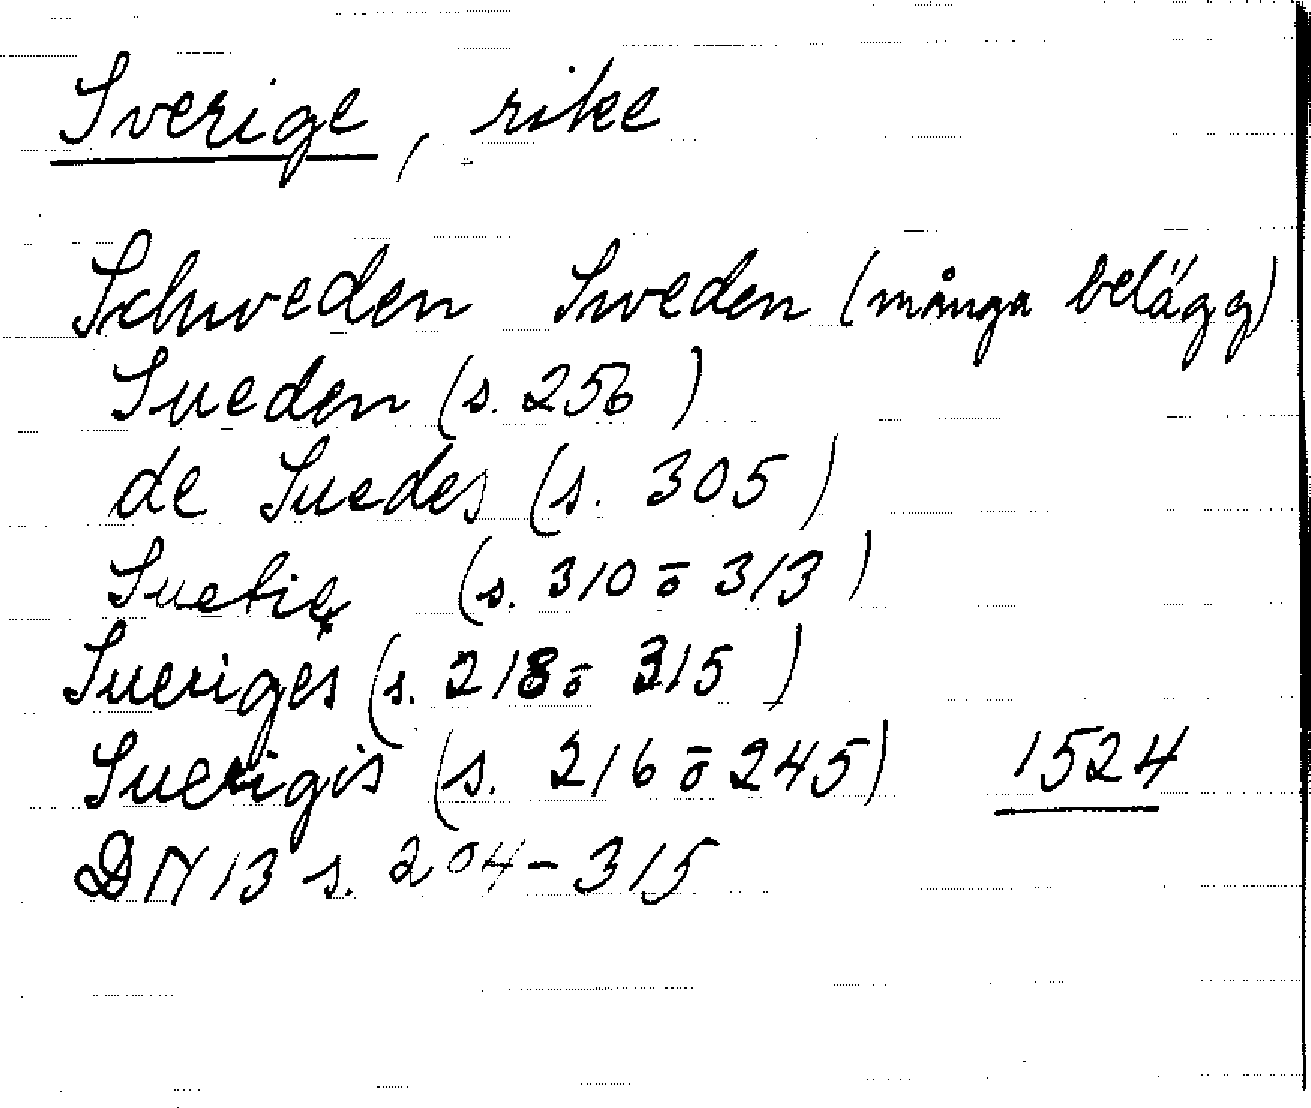 Sverige, rike
Schweden Sweden (många belägg)
Sueden (s. 256)
de Suedes (s. 305)
Suetię (s. 310 o 313)
Sueriges (s. 218 o 315)
Suerigis (s. 216 o 245) 1524
DN 13 s. 204-315